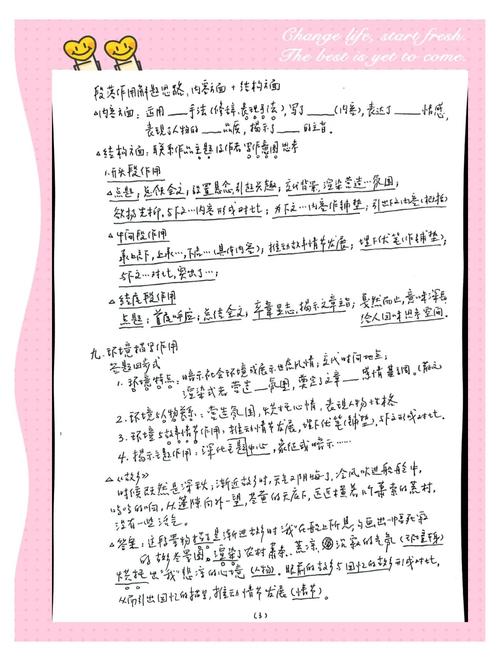 Change life, start fresh.
The best is yet to come.
段落作用解题思路:内容方面 + 结构方面
△内容方面:运用___手法(修辞、表现手法),写了___(内容),表达了___情感,
表现了人物的___品质,揭示了___的主旨。
△结构方面:联系作品主题及作者写作意图思考
1.开头段作用
△点题;总领全文;设置悬念,引起兴趣;交代背景,渲染营造…氛围;
欲扬先抑,与下文…内容形成对比;为下文…内容作铺垫;引出下文内容(概括)
△中间段作用
承上启下,上承…,下启…(具体内容);推动故事情节发展;埋下伏笔(作铺垫);
与下文…对比,突出了…;
△结尾段作用
点题;首尾呼应;总结全文;卒章显志,揭示文章主旨;戛然而止,意味深长
给人回味思考空间.
九.环境描写作用
答题四步式
1.环境特点:暗示社会环境或展示地点风情;交代时间地点;
渲染或者营造___氛围,奠定了文章___感情基调.(散文
2.环境与人物关系:营造氛围,烘托心情,表现人物性格
3.环境与故事情节作用:推动情节发展,埋下伏笔(铺垫),与下文形成对比.
4.揭示主题作用:深化主题中心,象征或暗示……
△《故乡》
时候既然是深秋;渐近故乡时,天气又阴晦了,冷风吹进船舱中,
呜呜的响,从篷隙向外一望,苍黄的天底下,远近横着几个萧索的荒村,
没有一些活气。
△答案:这段景物描写是渐进故乡时"我"在船上所见,勾画出一幅死寂
的故乡冬景图。渲染了农村萧条、荒凉、沉寂的气氛(环境特)
烘托出"我"悲凉的心境(人物).眼前的故乡与回忆的故乡形成对比,
从而引出回忆的描写,推动情节发展(情节)。
(3)